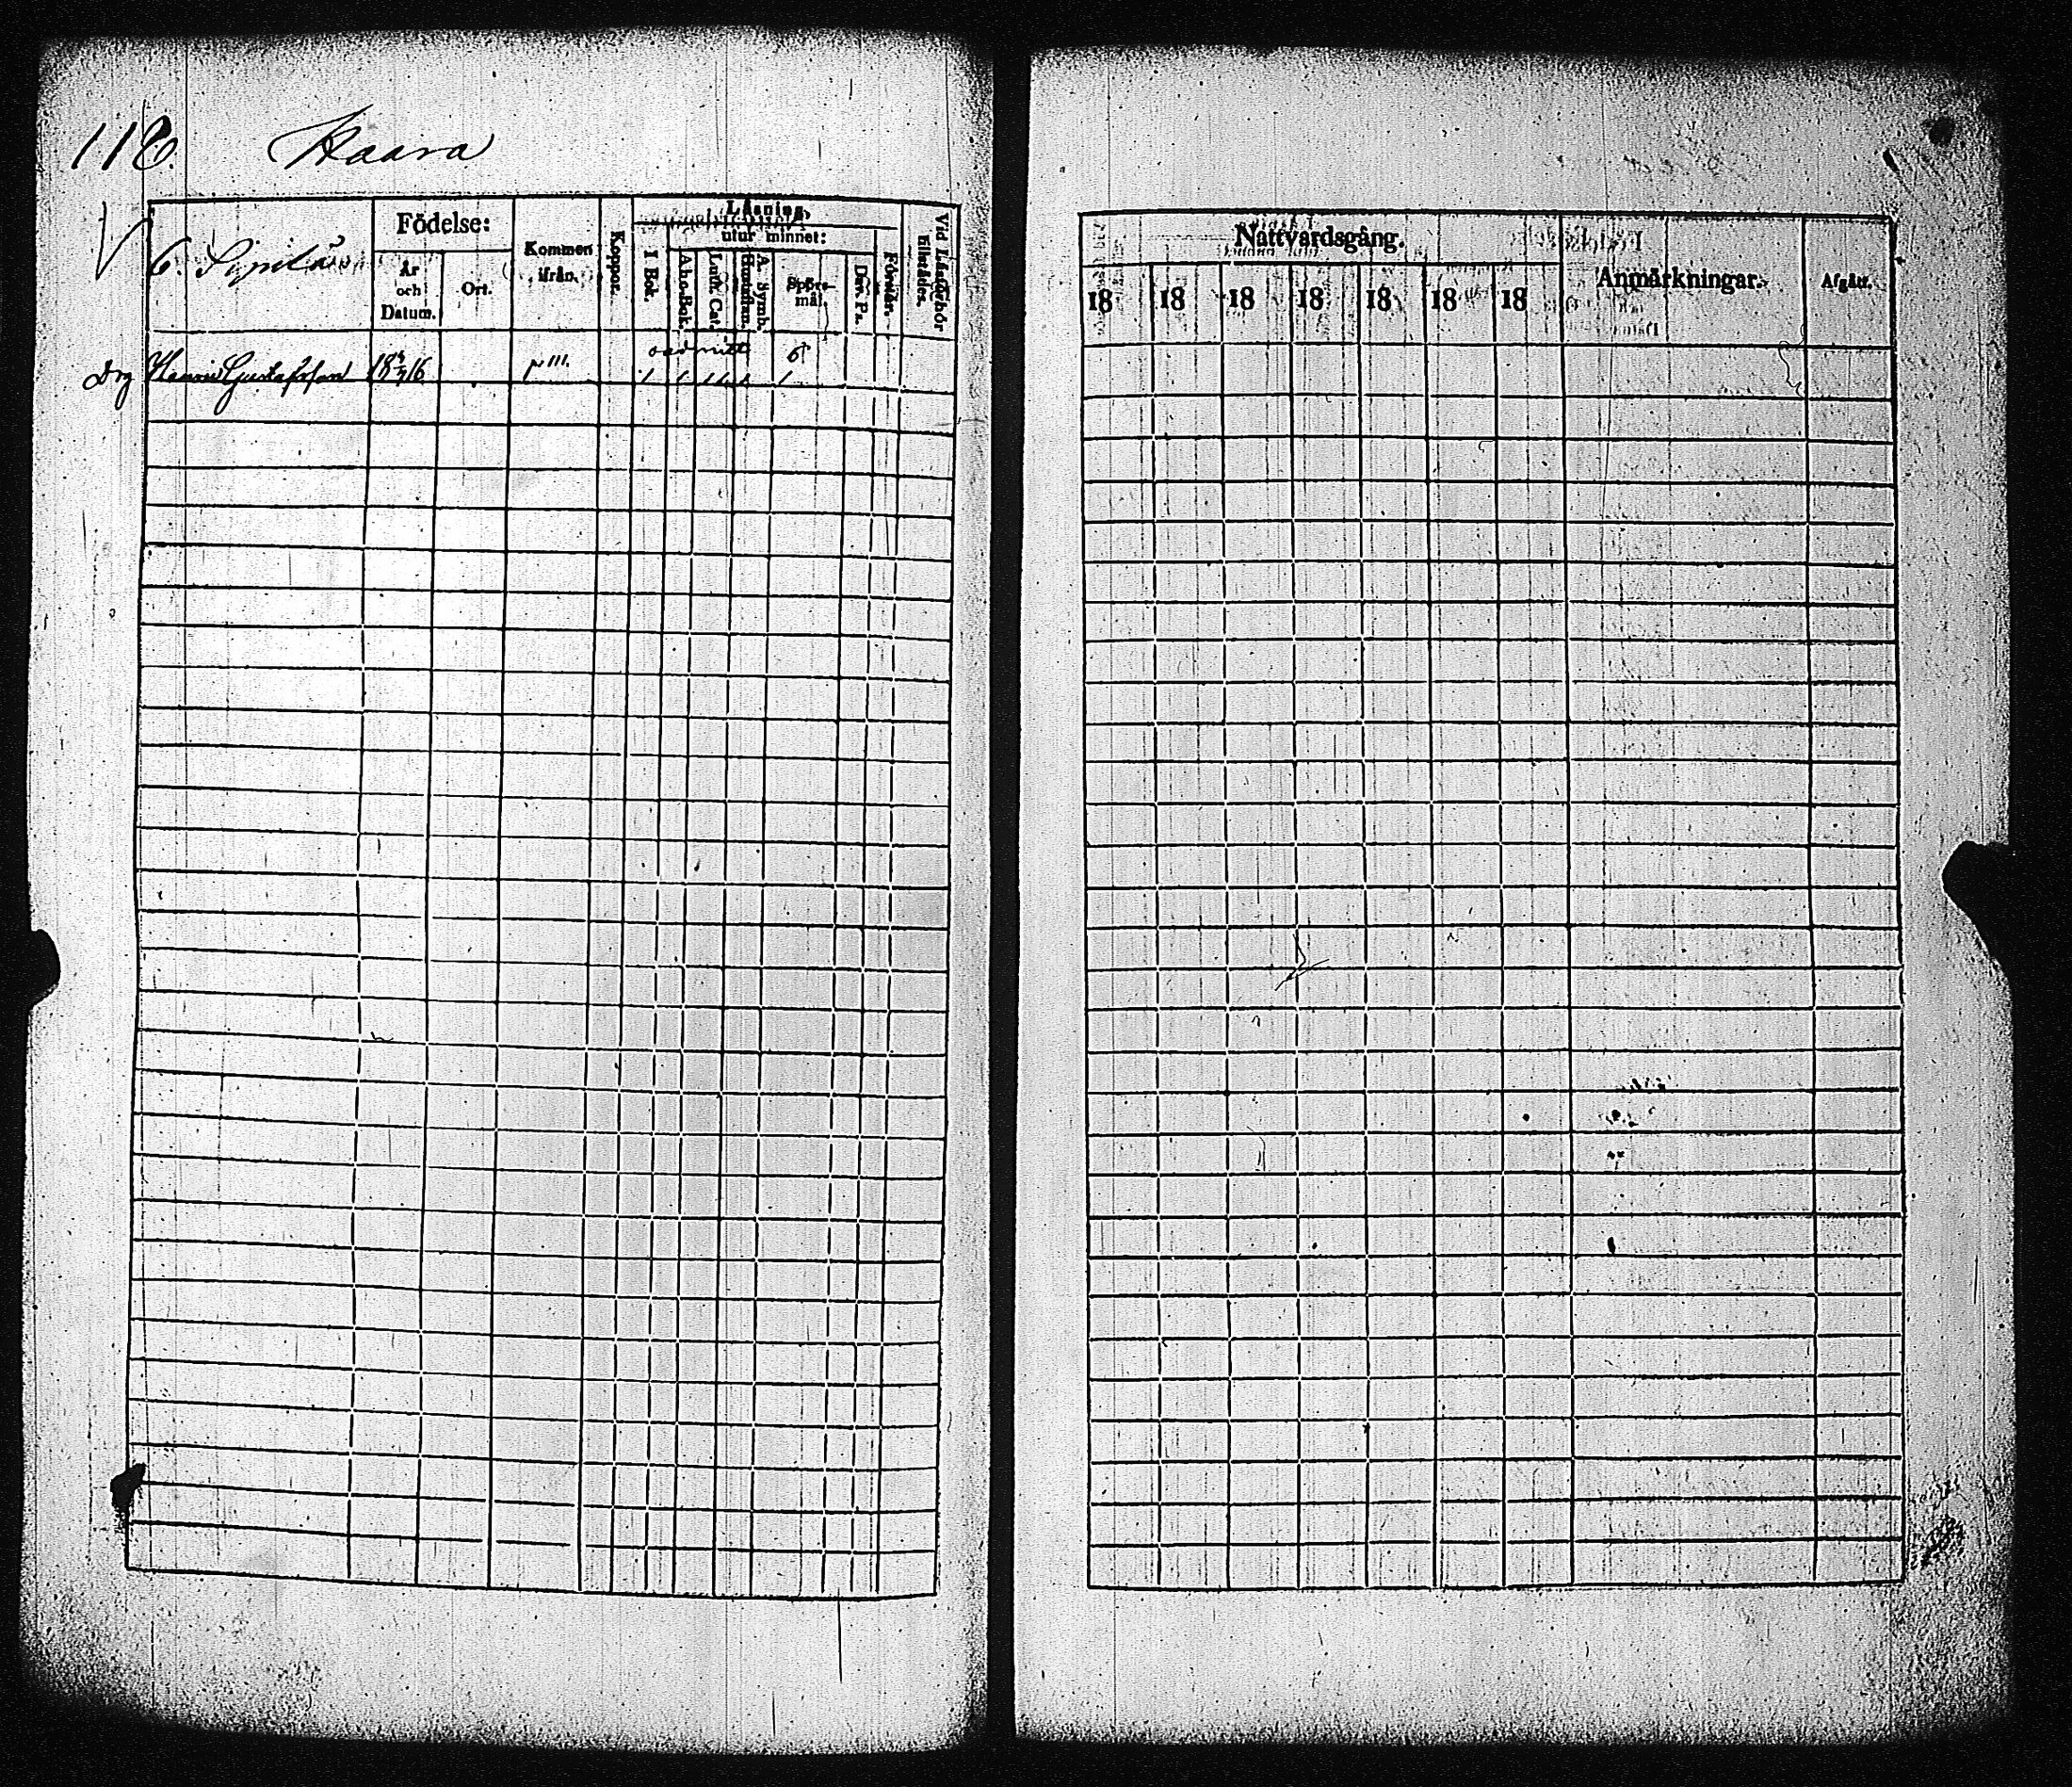 116. Kaara
6. Sipilä
Födelse:
År och Datum.
Ort.
Kommen ifrån.
Koppor.
Läsning,
I Bok.
utur minnet:
A-b-c-Bok.
Luth. Cat.
Hustaflan.
A. Symb.
Spörs-mål.
Dav. Ps.
Förstår.
Vid Läsförhör tillstädes.
Drg Gustafsson 18 16 p 111.
Nattvardsgång.
18 18 18 18 18 18 18
Anmärkningar.
Afgått.